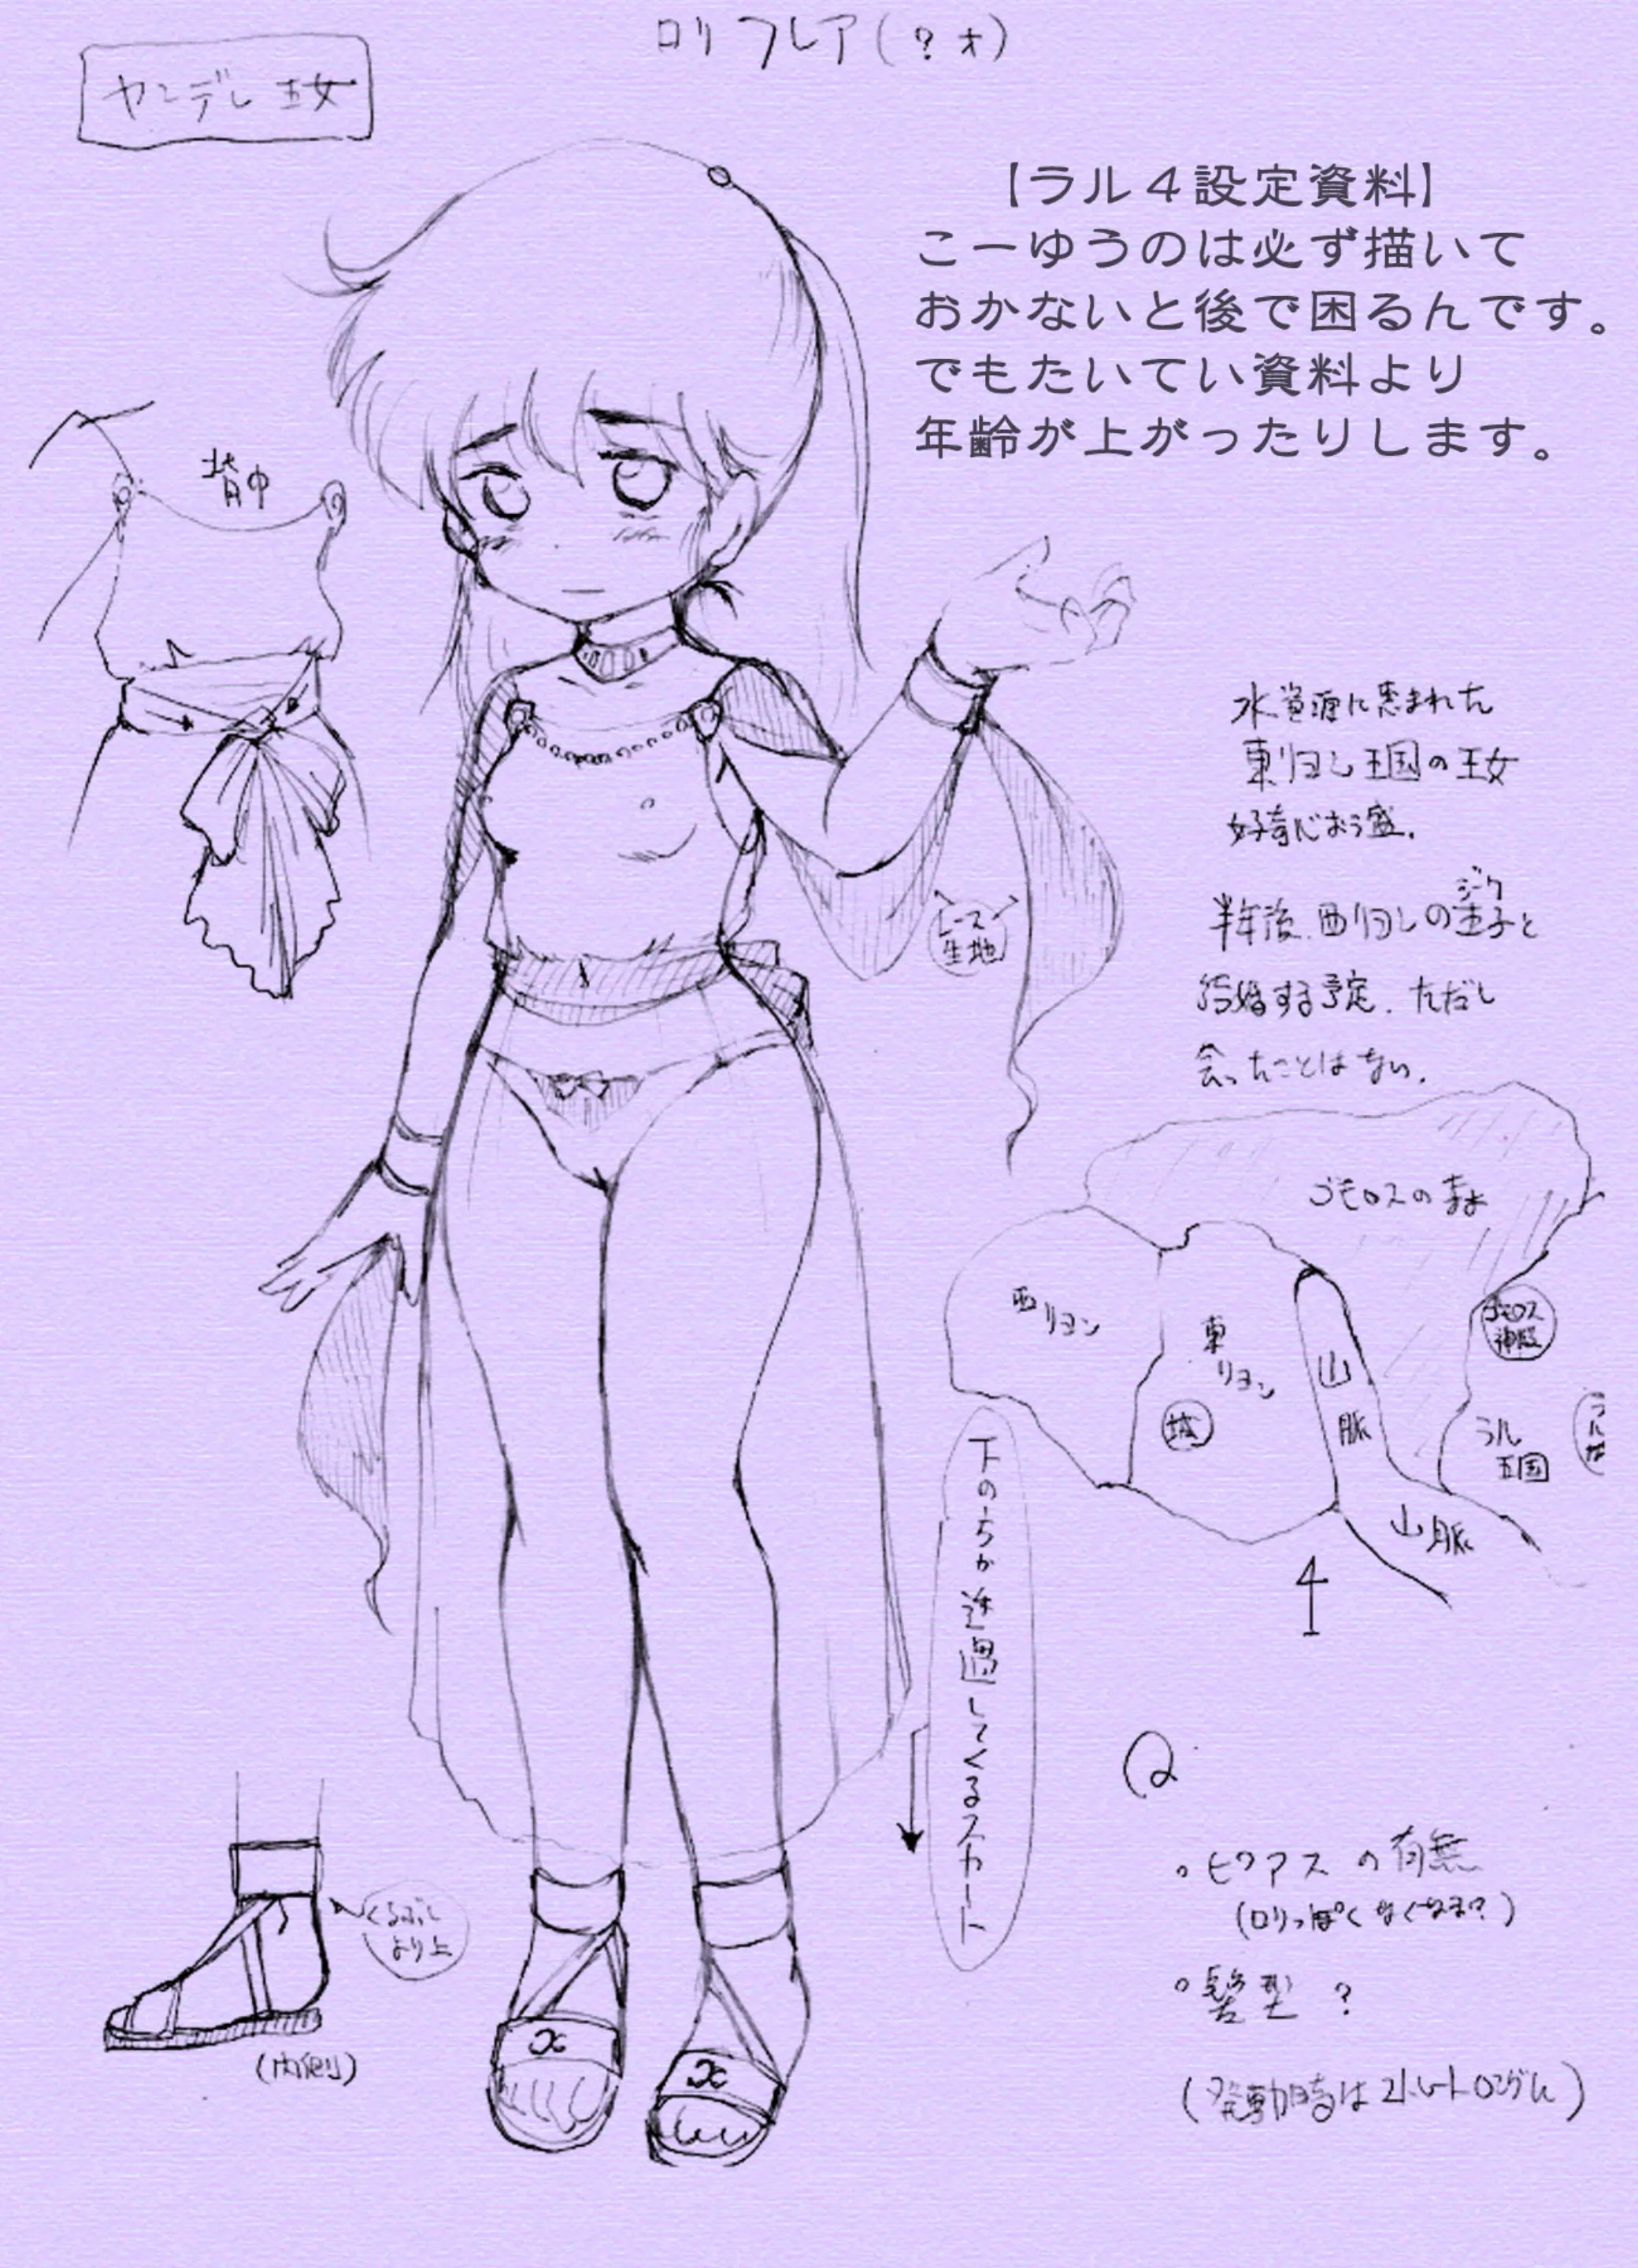 ロリ フレア(?才)
ヤンデレ王女
【ラル4設定資料】
こーゆうのは必ず描いて
おかないと後で困るんです。
でもたいてい資料より
年齢が上がったりします。
背中
水資源に恵まれた
東リヨン王国の王女
好奇心おう盛.
ジーク
半年後.西リヨンの王子と
結婚する予定.ただし
会ったことはない.
レース
生地
ゴモロスの森
西リヨン
東リヨン
城
山脈
ゴモロス
神殿
ラル
王国
山脈
下のちが透過してくるスカート
Q
。ピアスの有無
(ロリっぽくなくなる?)
。髪型 ?
(発動時はストレートロングに)
くるぶし
より上
(内側)